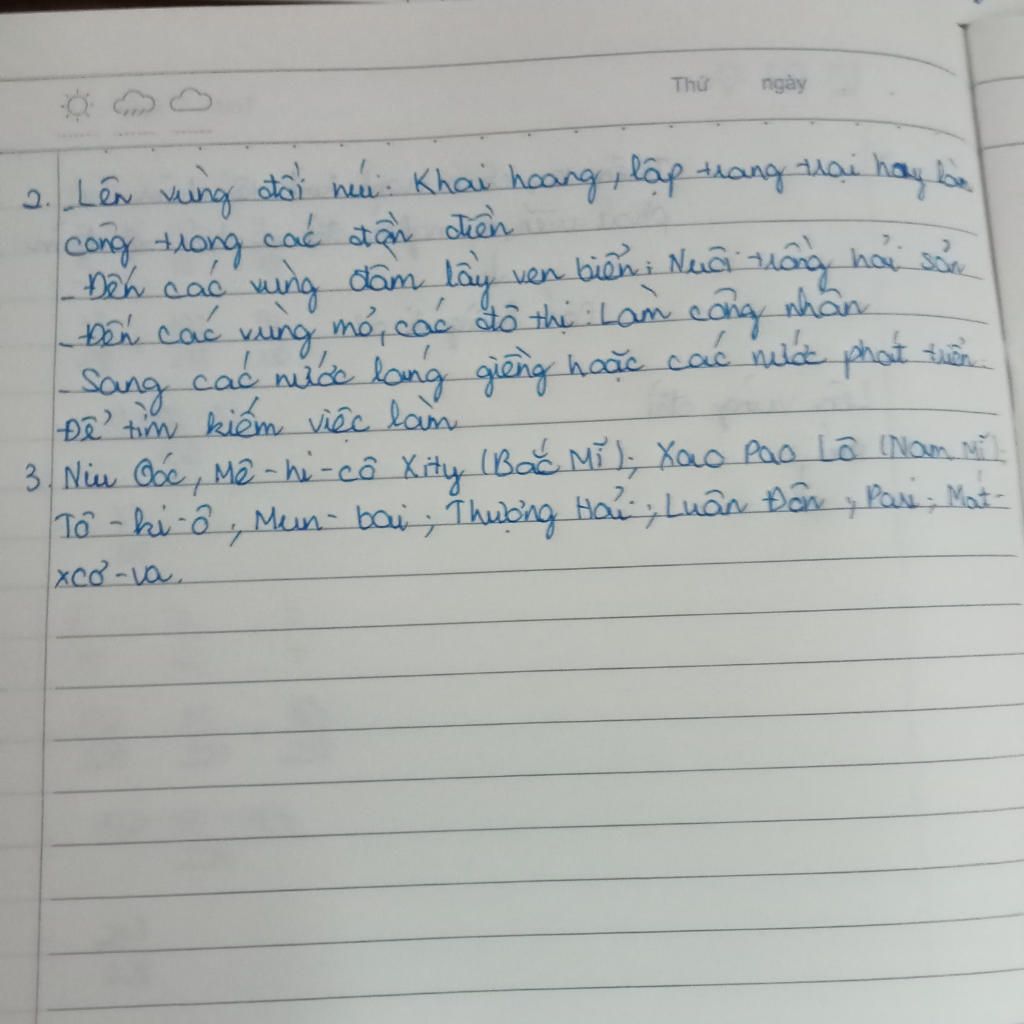 Thứ ngày
2. - Lên vùng đồi núi: Khai hoang, lập trang trại hay làm
công trong các đồn điền
- Đến các vùng đầm lầy ven biển: Nuôi trồng hải sản
- Đến các vùng mỏ, các đô thị: Làm công nhân
- Sang các nước láng giềng hoặc các nước phát triển
Để tìm kiếm việc làm
3. Niu Oóc, Mê-hi-cô Xity (Bắc Mĩ); Xao Pao Lô (Nam Mĩ);
Tô-ki-ô; Mun-bai; Thượng Hải; Luân Đôn; Pari; Mát-
xcơ-va.